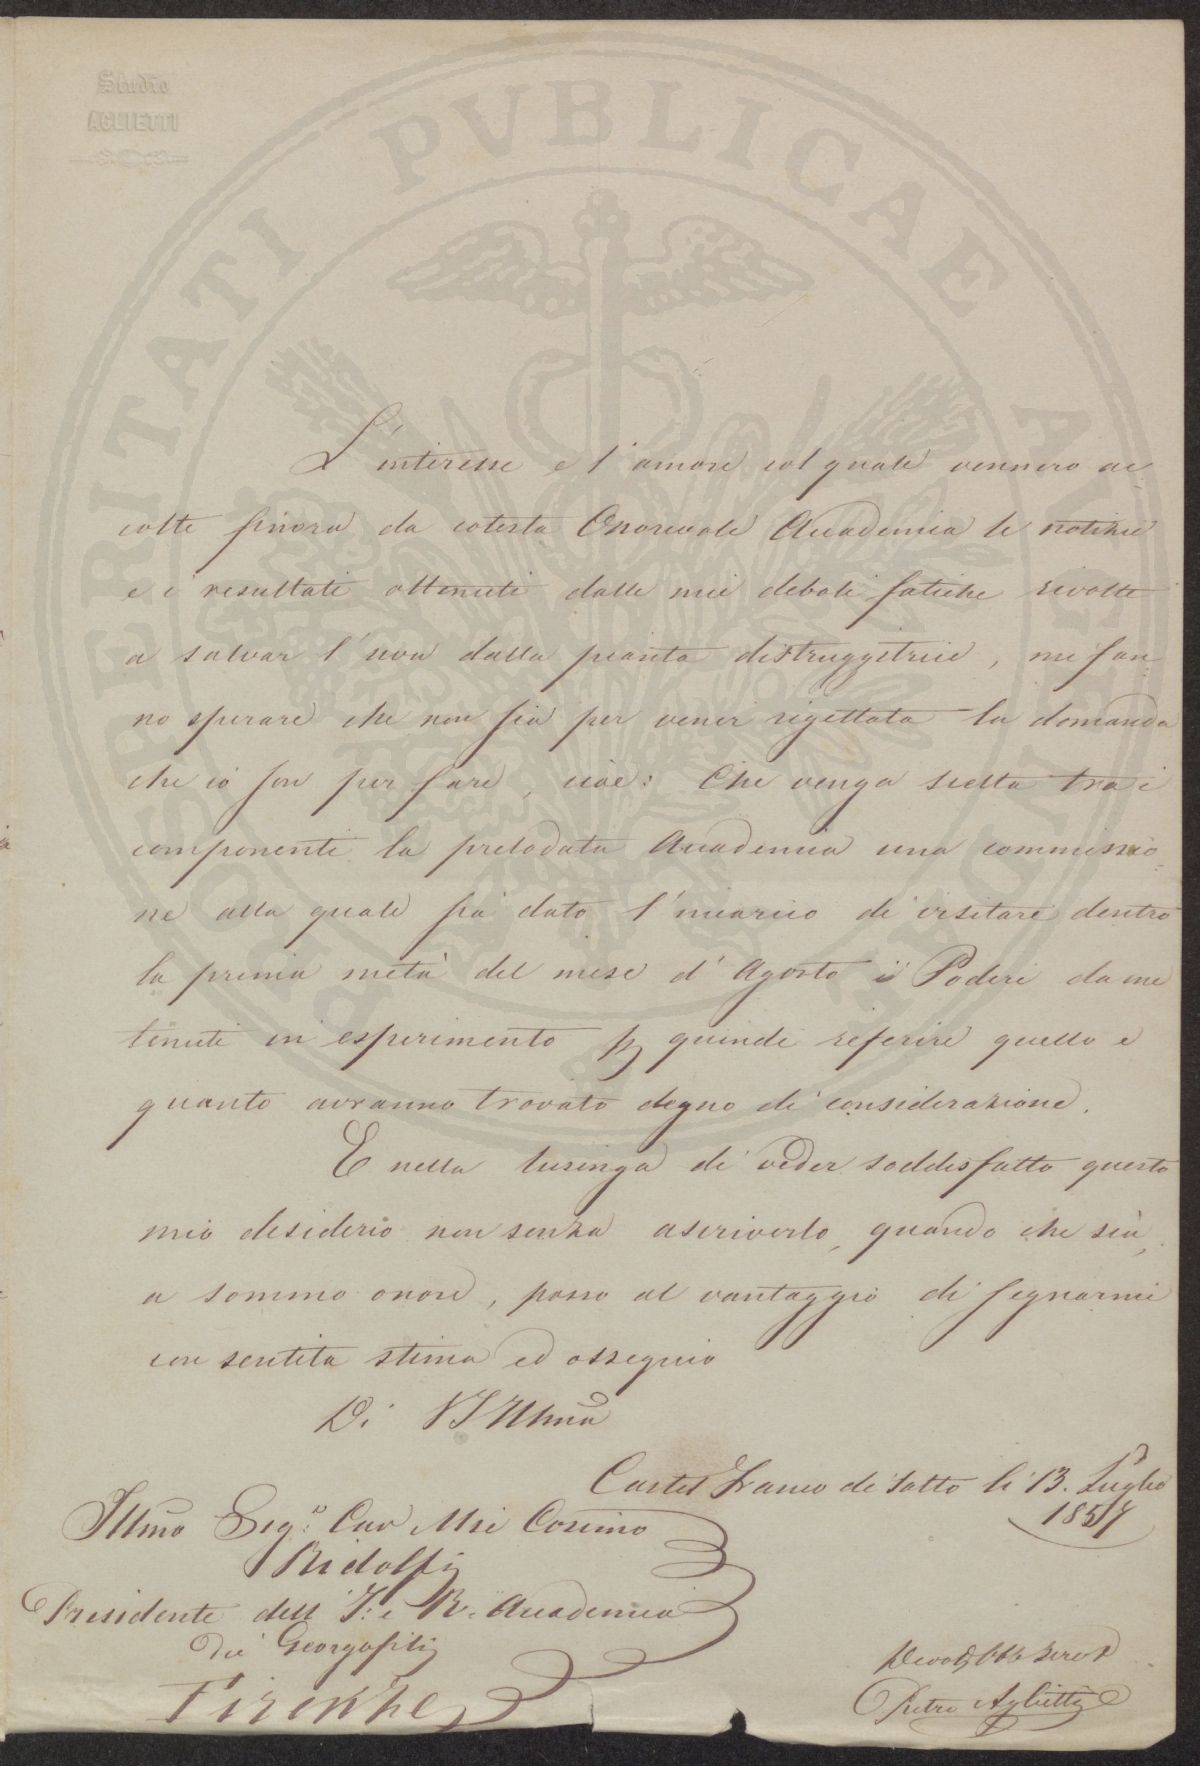 Studio
AGLIETTI
PROSPERITATI PVBLICAE AVGENDAE
L'interesse e l'amore col quale vennero ac
colte finora da cotesta Onorevole Accademia le notizie
e i resultati ottenuti dalle mie deboli fatiche rivolte
a salvar l'uva dalla pianta distruggitrice, mi fan
no sperare che non sia per venir rigettata la domanda
che io son per fare, cioè: Che venga scelta tra i
componenti la prelodata Accademia una commissio
ne alla quale sia dato l'incarico di visitare dentro
la prima metà del mese d'Agosto i Poderi da me
tenuti in esperimento p quindi referire quello e
quanto avranno trovato degno di considerazione.
E nella lusinga di veder soddisfatto questo
mio desiderio non senza ascriverlo, quando che sia,
a sommo onore, passo al vantaggio di segnarmi
con sentita stima ed ossequio
Di VS Illma
Castel Franco di Sotto li 13. Luglio
1857
Illmo Sigr Cav Mse Cosimo
Ridolfi
Presidente dell' I. e R. Accademia
Dei Georgofili
Firenze
Devot Obb Serv
Pietro Aglietti